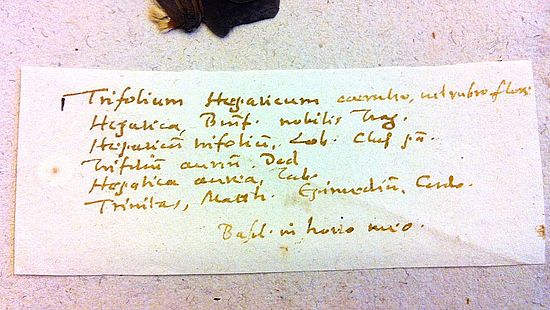 Trifolium Hepaticum caeruleo, vel rubro flore
Hepatica, Brunf. nobilis Trag.
Hepaticũ trifoliũ, Lob. Clus
Trifoliũ aureũ Dod
Hepatica aurea, Tab.
Trinitas, Matth. Epimediũ, Cordo.
Basil. in horto meo.